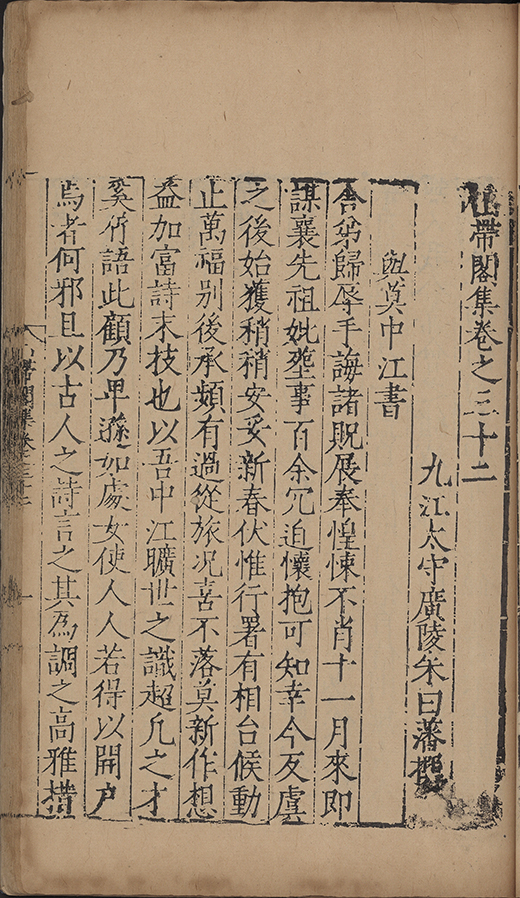 山帶閣集卷之三十二
九江太守廣陵朱曰藩
與莫中江書
舍弟歸辱手誨諸貺展奉惶悚不肖十一月來即
謀襄先祖妣塟事百余冗迫懷抱可知幸今反虞
之後始獲稍稍安妥新春伏惟行署有相台候動
止萬福别後承頻有過從旅况喜不落莫新作想
益加富詩末技也以吾中江曠世之識超凢之才
奚所語此顧乃卑遜如處女使人人若得以開户
焉者何邪且以古人之詩言之其為調之高雅措
山帶閣集卷三十二
一